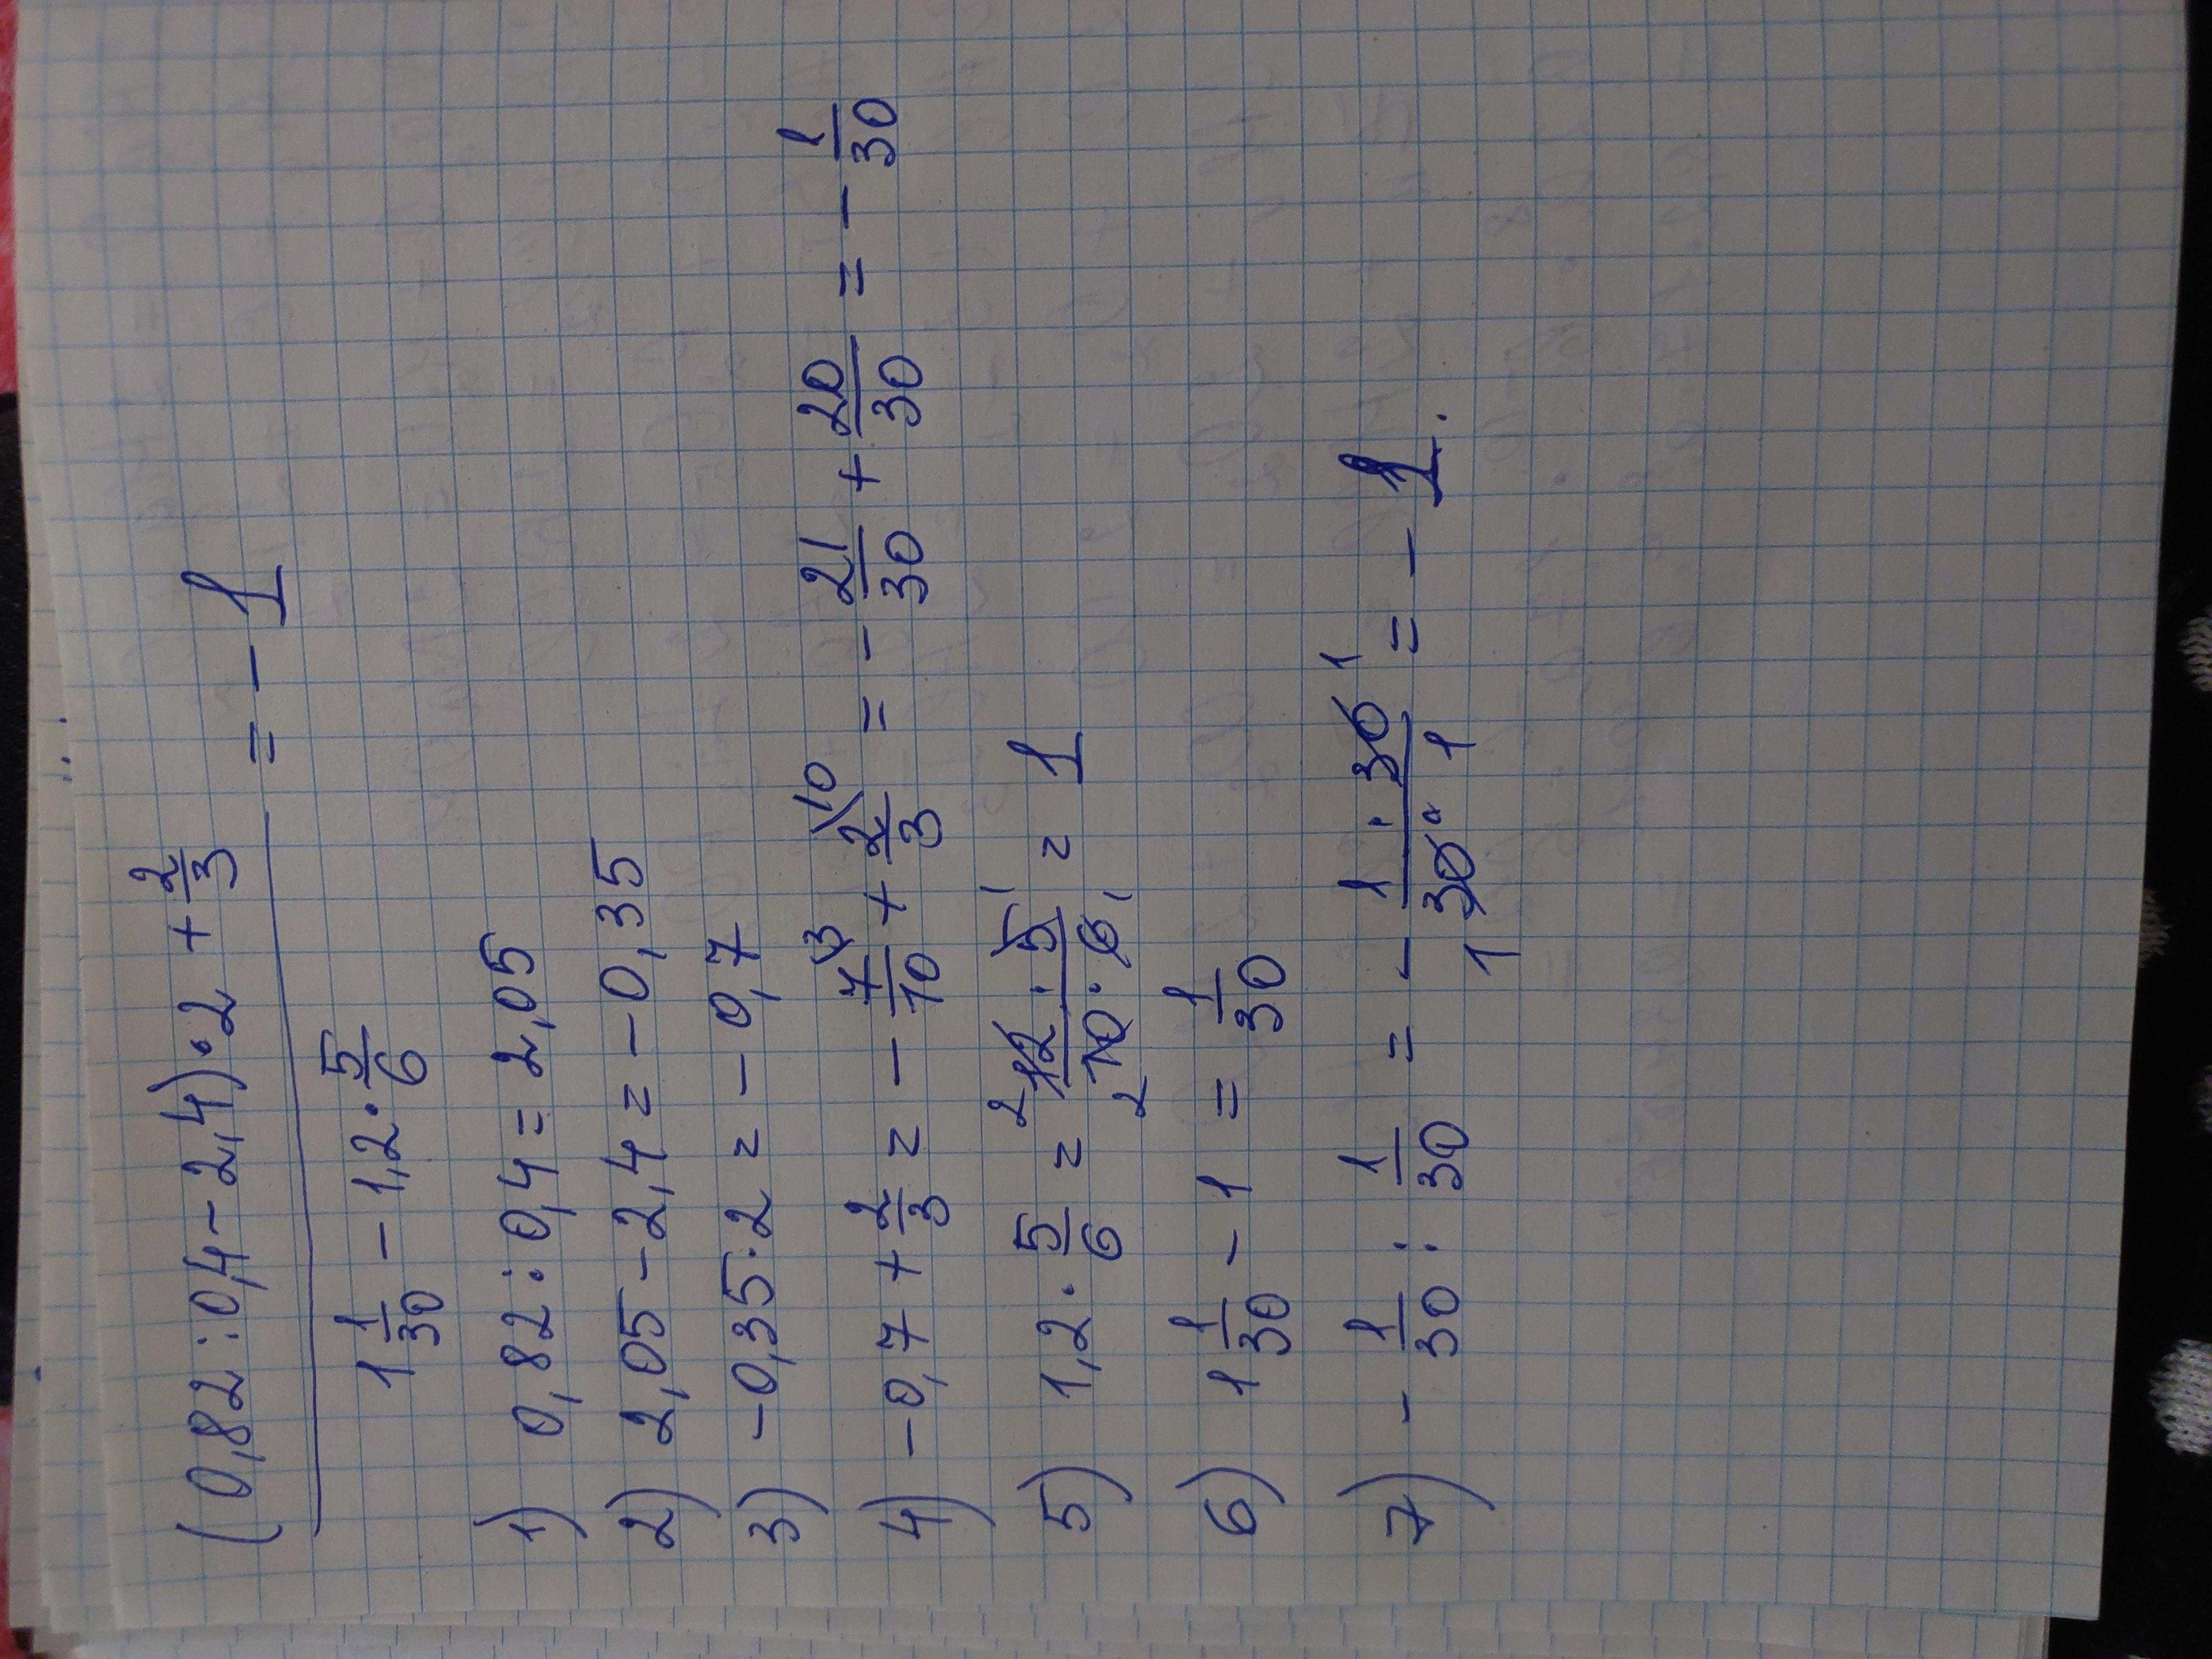 (0,82:0,4-2,4)·2+2/3 = -1
1 1/30 - 1,2·5/6
1) 0,82:0,4=2,05
2) 2,05-2,4=-0,35
3) -0,35·2=-0,7
4) -0,7+2/3=-7\3/10+2\10/3=-21/30+20/30=-1/30
5) 1,2·5/6= 2 12·5 1/2 10·6 1 = 1
6) 1 1/30 - 1 = 1/30
7) -1/30 : 1/30 = - 1·30 1/1 30·1 = -1.